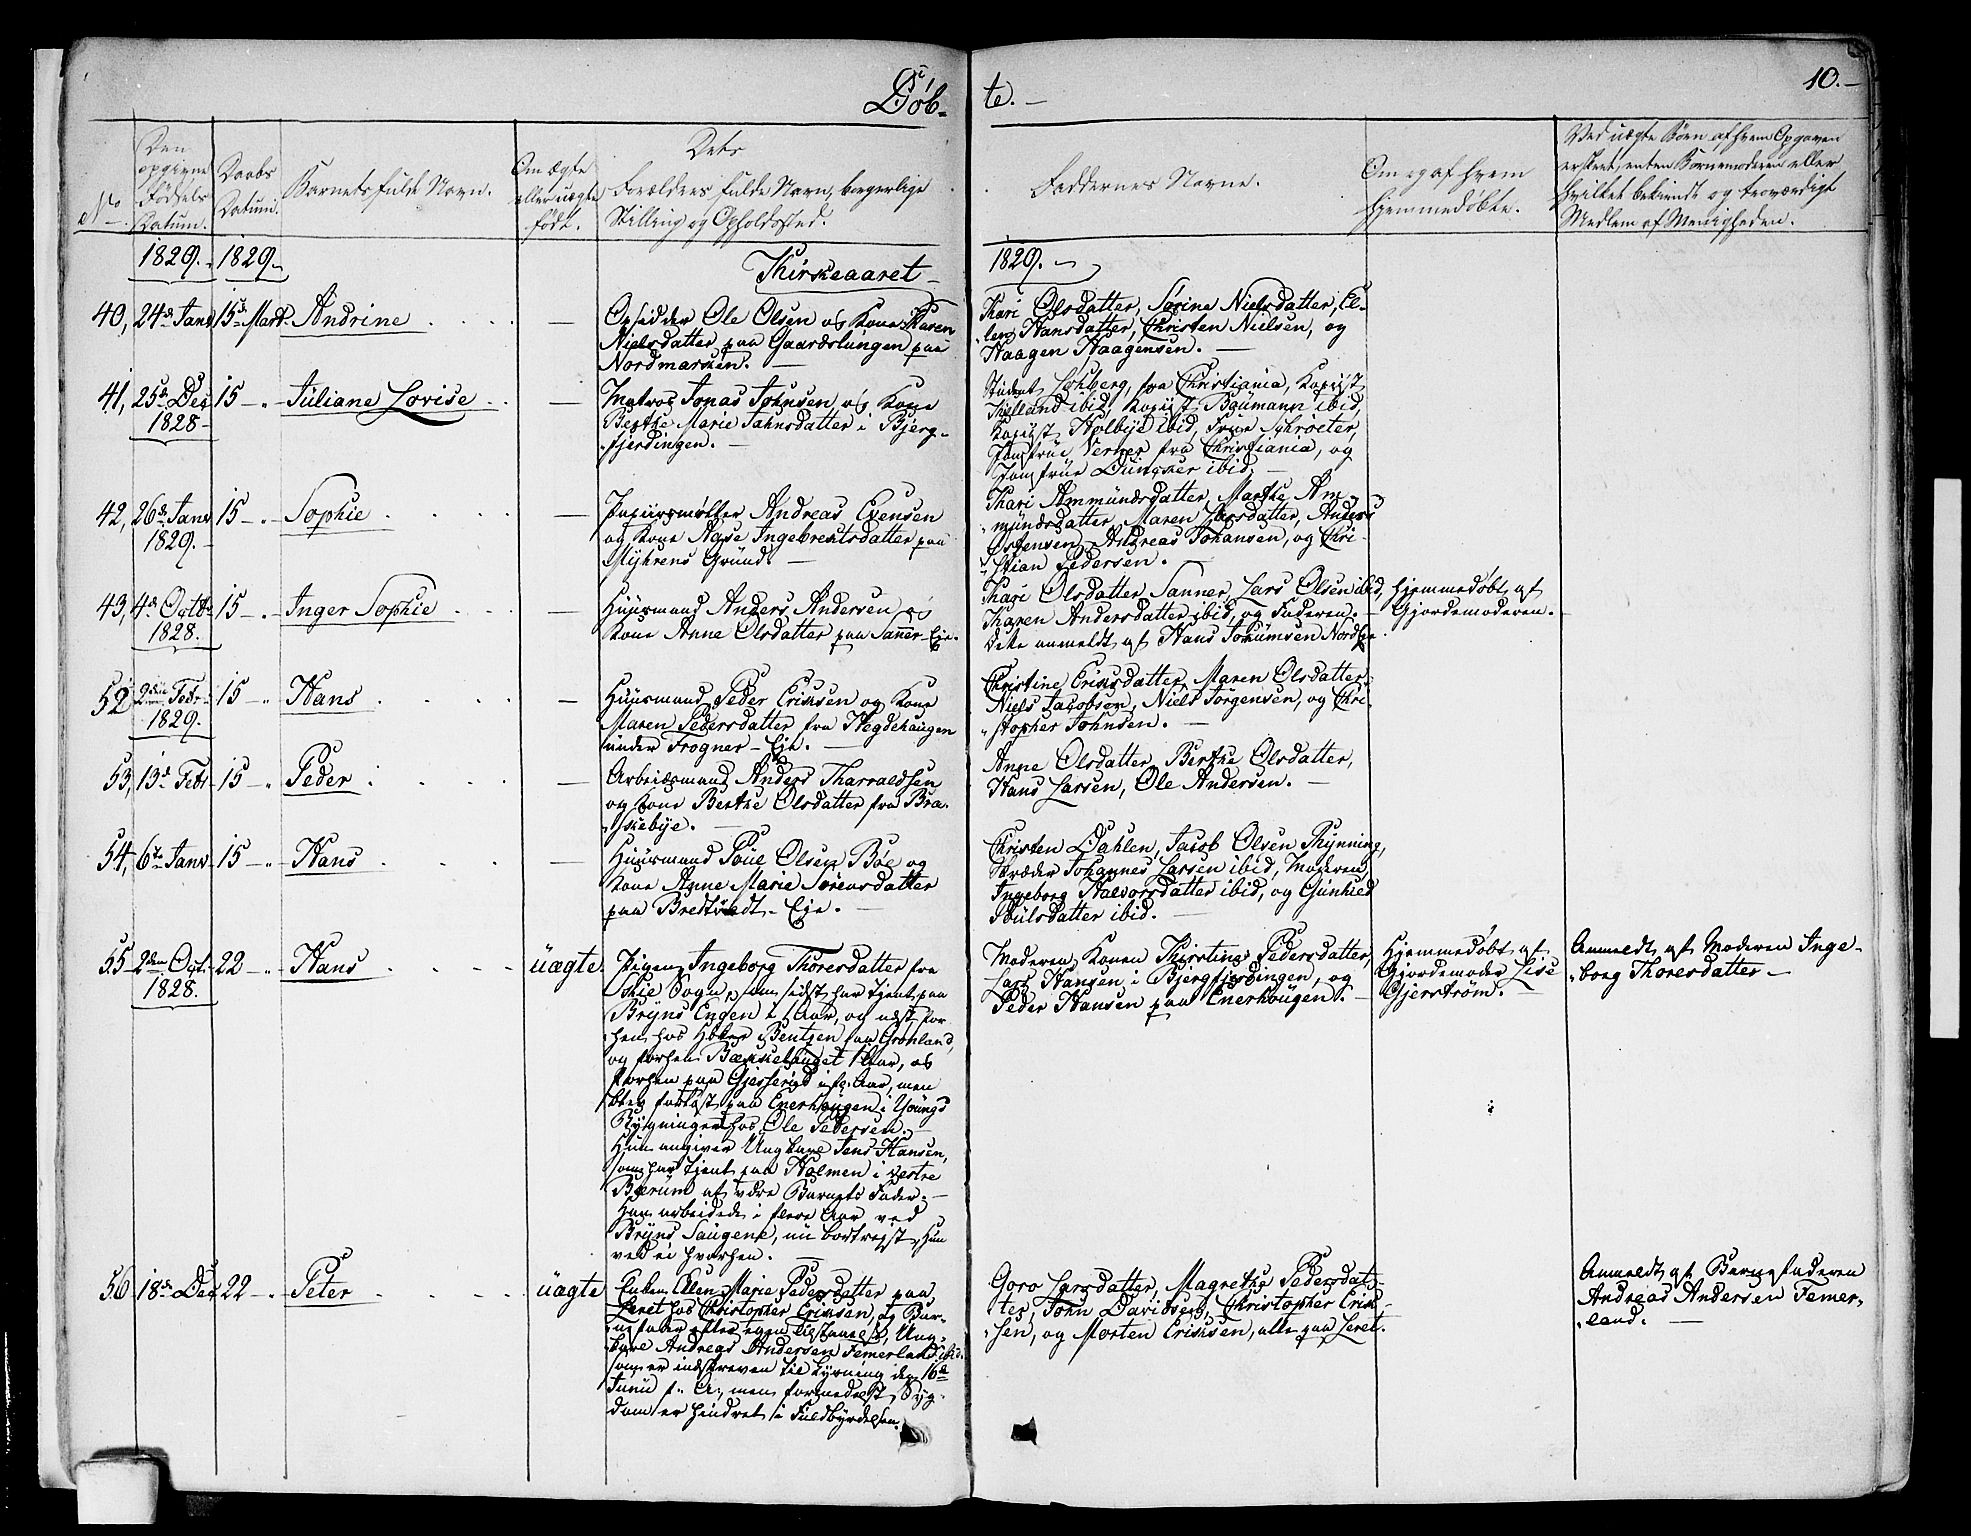 Døb-
te. —
10. —
No
Den
opgivne
Fødsels
Datum.
Daabs
Datum.
Barnets fulde Navn.
Om ægte
eller uægte
født.
Dets
Forældres fulde Navn, borgerlige
Stilling og Opholdssted.
Faddernes Navne.
Om og af hvem
hjemmedøbte.
Ved uægte Børn af hvem Opgaven
er skeet; enten Barnemoderen eller
hvilket bekiendt og troværdigt
Medlem af Menigheden.
1829. 1829.
Kirkeaaret
1829.
40, 24de Janv 15de Mart. Andrine —
Opsidder Ole Olsen og Kone Karen
Nielsdatter paa Gaardslungen paa
Nordmarken. —
Kari Olsdatter, Sørine Nielsdatter, El-
len Hansdatter, Christen Nielsen, og
Haagen Haagensen. —
41, 25de Dec 15 — Juliane Lovise —
1828
Matros Jonas Johnsen og Kone
Berthe Marie Jahnsdatter i Bjerg-
fjerdingen. —
Student Lohberg, fra Christiania, Kopist
Kopist Baumann ibid,
Kopist Holbye ibid, Frue Schroeter,
Jomfrue Verner fra Christiania, og
Jomfrue Duncker ibid. —
42, 26de Janv 15 — Sophie —
1829.
Papiirsmøller Andreas Evensen
og Kone Aase Ingebretsdatter paa
Myhrens Grund. —
Kari Ammundsdatter, Marthe Am-
mundsdatter, Maren Larsdatter, Anders
Østensen, Andreas Johansen, og Chri-
stian Pedersen.
43, 4de Octb 15 — Inger Sophie —
1828.
Huusmand Anders Andersen og
Kone Anne Olsdatter paa Sanner-Eje.
Kari Olsdatter Sanner, Lars Olsen ibid,
Karen Andersdatter ibid, og Faderen. —
Dette anmeldt af Hans
Hjemmedøbt af
Gjordemoderen.
52 2den Febr 15 — Hans —
1829.
Huusmand Peder Erichsen og Kone
Maren Pedersdatter fra Hegdehaugen
under Frogner-Eje. —
Christine Erichsdatter, Maren Olsdatter,
Niels Jacobsen, Niels Jørgensen, og Chri-
stopher Johnsen. —
53, 13de Febr 15 — Peder —
Arbeidsmand Anders Tharraldsen
og Kone Berthe Olsdatter fra Bra-
kebye. —
Anne Olsdatter, Berthe Olsdatter,
Hans Larsen, Ole Andersen. —
54, 6te Janv 15 — Hans —
Huusmand Poue Olsen Bøe og
Kone Anne Marie Sørensdatter
paa Bredtvedt-Eje. —
Christen Dahlen, Jacob Olsen Rynning,
Skræder Johannes Larsen ibid, Moderen,
Ingeborg Halvorsdatter ibid, og Gunhild
Poulsdatter ibid. —
55 2den Oct. 22 — Hans uægte
1828.
Pigen Ingeborg Thoresdatter fra
Skie Sogn, som sidst har tjent paa
Bryns Engen i Aar, og næst for-
hen hos Bentzen paa Grønland,
og forhen Bækkelauget 1 Aar, og
forhen paa i fl. Aar, men
blev forløst paa Enerhougen i Youngs
Bygninger hos Ole Pedersen. —
Hun angiver Ungkarl Jens Hansen,
som har tjent paa Holmen i vestre
Bærum at være Barnets Fader. —
Han arbeidede i flere Aar ved
Bryns Saugene, nu bortreist, Hun
ved ei hvorhen. —
Moderen, Konen Kirstine Pedersdatter,
Lars Hansen i Bjergfjerdingen, og
Peder Hansen paa Enerhougen. —
Hjemmedøbt af
Gjordemoder Lise
Gjerström. —
Anmeldt af Moderen Inge-
borg Thoresdatter —
56 18de Dec 22 — Peter uægte
Enken Elen Marie Pedersdatter paa
Leret hos Christopher Erichsen, og Bar-
nefader efter egen Tilstaaelse, Ung-
karl Andreas Andersen Femerland ibid.
som er indskreven til Lysning den 16de
Junii f. A., men formedelst Syg-
dom er hindret i Fuldbyrdelsen.
Goro Larsdatter, Magrethe Pedersdat-
ter, John Davidsen, Christopher Erich-
sen, og Morten Erichsen, alle paa Leret.
Anmeldt af Barnefaderen
Andreas Andersen Femer-
land. —